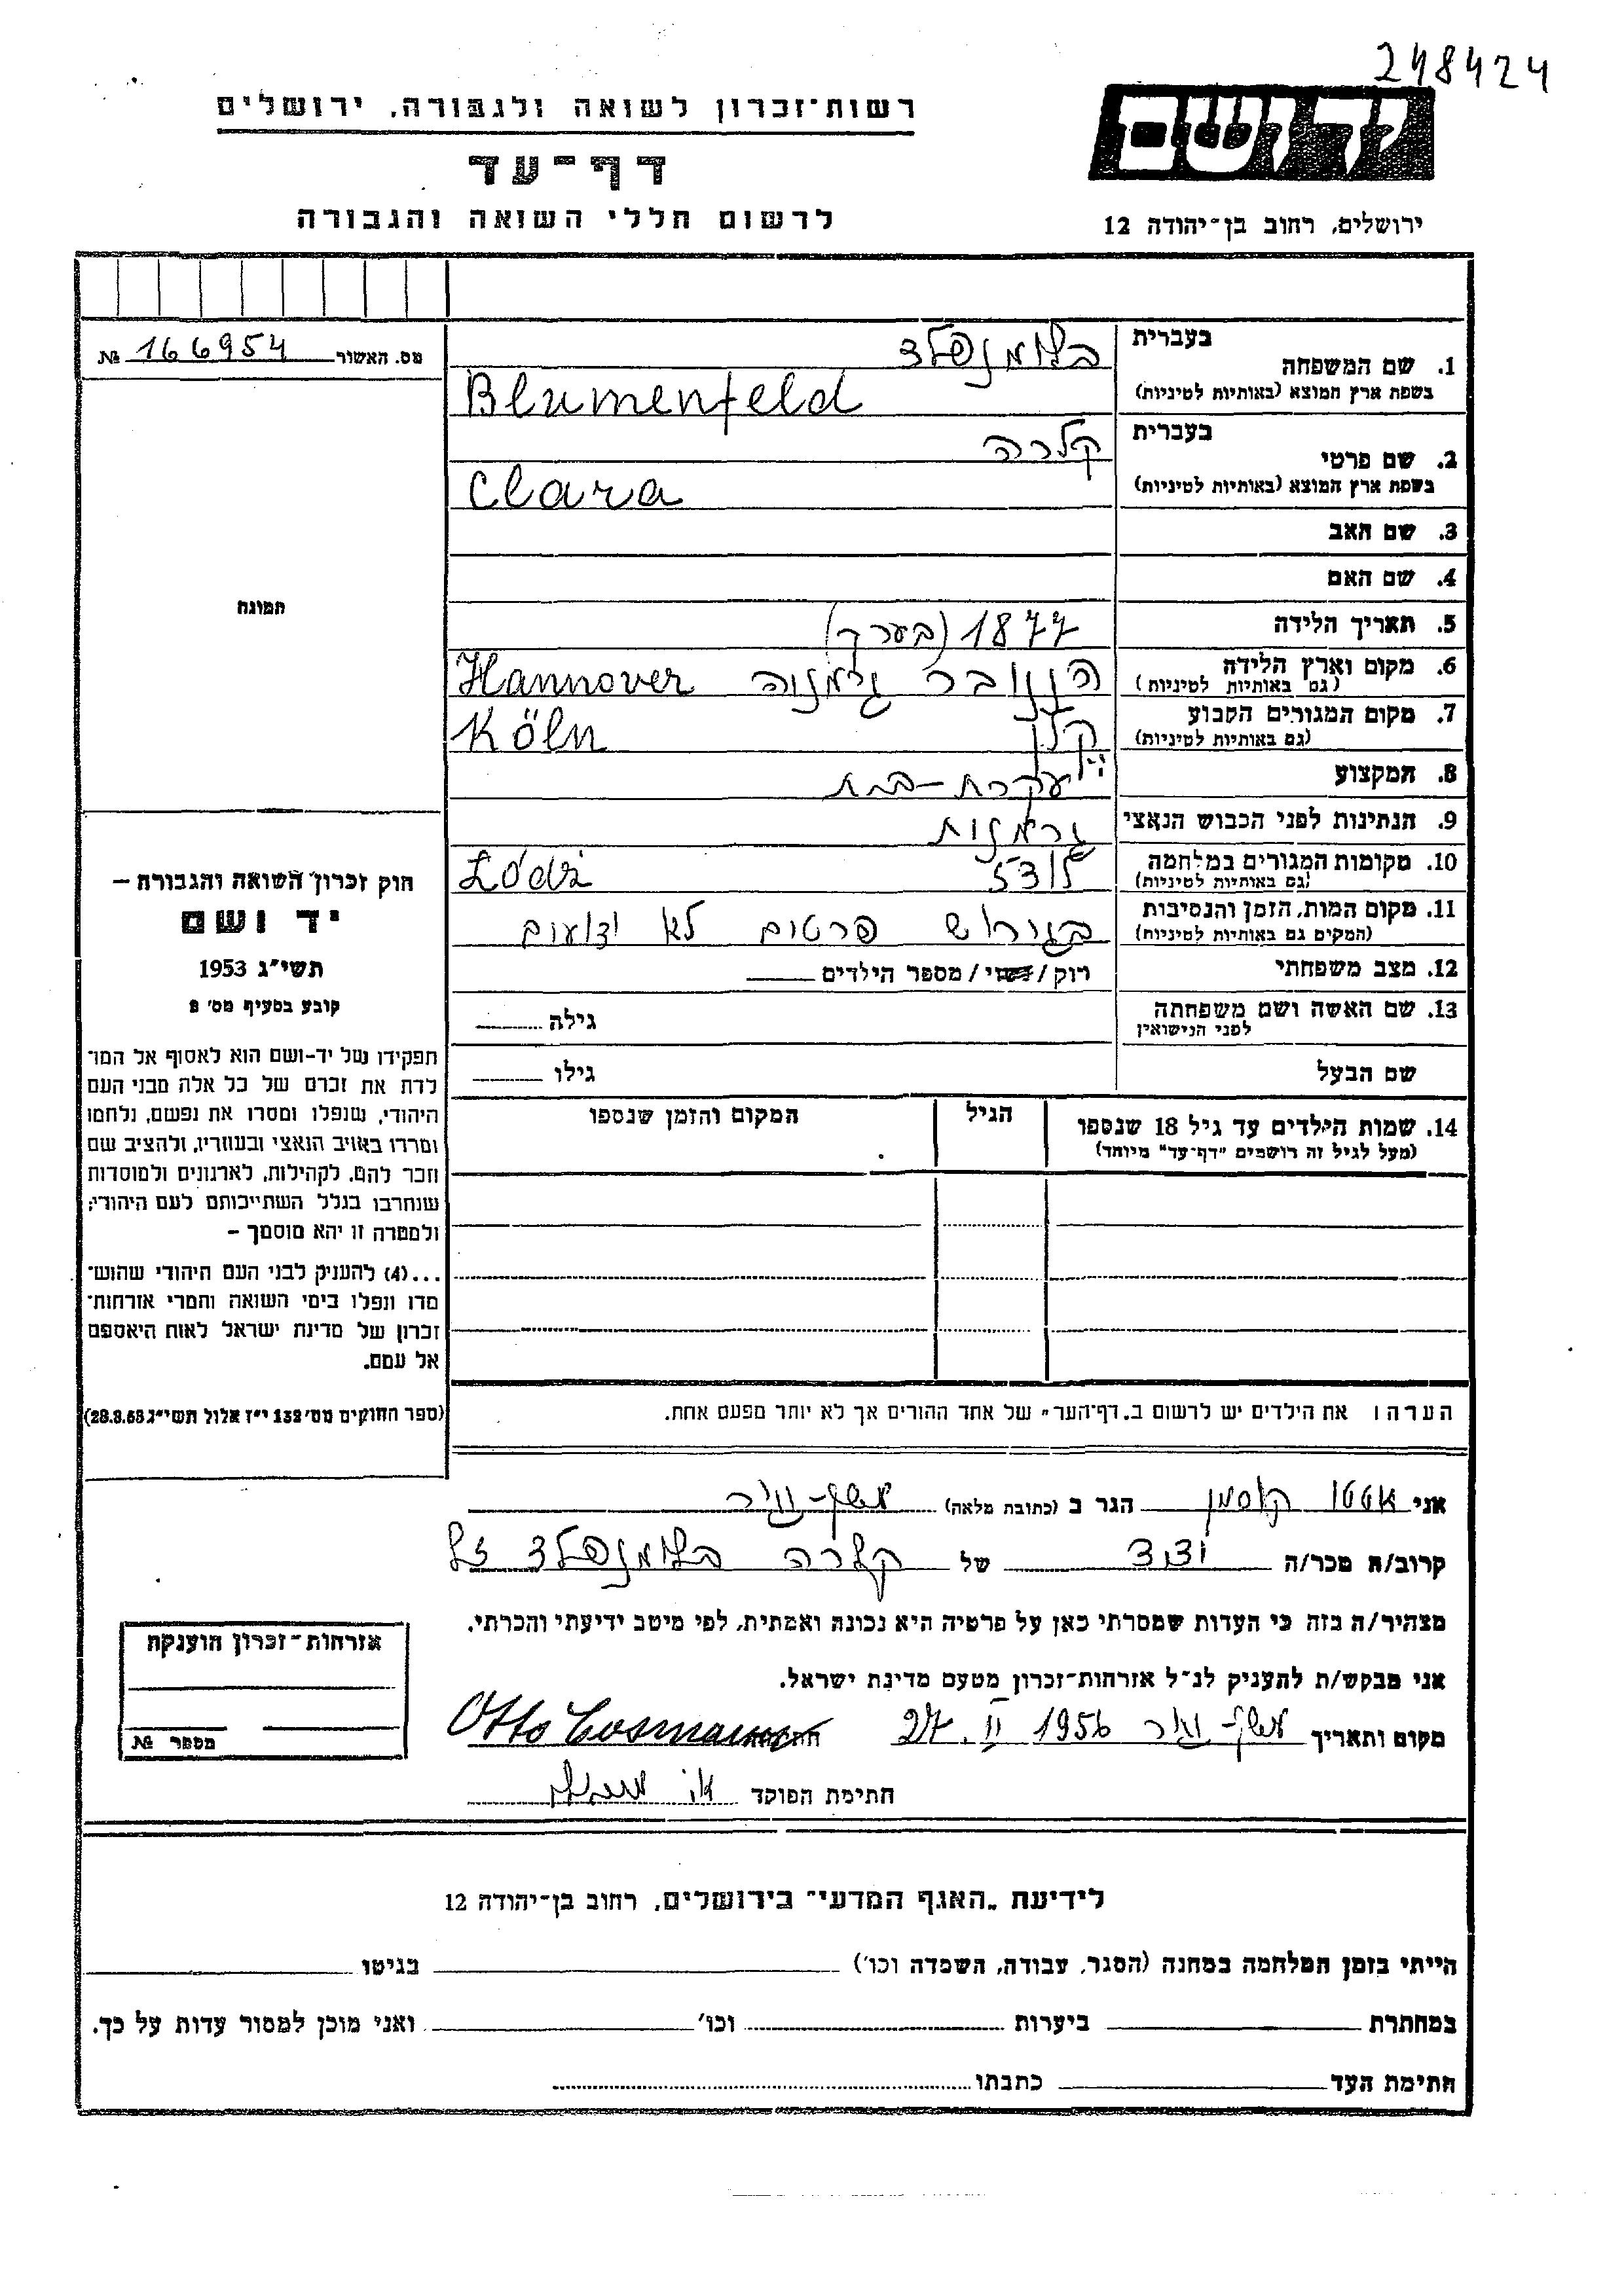 248424
יד ושם
ירושלים, רחוב בן-יהודה 12
רשות-זכרון לשואה ולגבורה, ירושלים
דף-עד
לרשום חללי השואה והגבורה
מס. האשור 166954 №
תמונה
חוק זכרון השואה והגבורה –
יד ושם
תשי״ג 1953
קובע בסעיף מס׳ 2
תפקידו של יד-ושם הוא לאסוף אל המו־
לדת את זכרם של כל אלה מבני העם
היהודי, שנפלו ומסרו את נפשם, נלחמו
ומרדו באויב הנאצי ובעוזריו, ולהציב שם
וזכר להם, לקהילות, לארגונים ולמוסדות
שנחרבו בגלל השתייכותם לעם היהודי;
ולמטרה זו יהא מוסמך –
...(4) להעניק לבני העם היהודי שהוש־
מדו ונפלו בימי השואה והמרי אזרחות־
זכרון של מדינת ישראל לאות היאספם
אל עמם.
(ספר החוקים מס׳ 132 י״ז אלול תשי״ג 28.8.53)
1. שם המשפחה
בעברית בלומנפלד
בשפת ארץ המוצא (באותיות לטיניות) Blumenfeld
2. שם פרטי
בעברית קלרה
בשפת ארץ המוצא (באותיות לטיניות) Clara
3. שם האב
4. שם האם
5. תאריך הלידה 1877 (בערך)
6. מקום וארץ הלידה הנובר גרמניה Hannover
(גם באותיות לטיניות)
7. מקום המגורים הקבוע קלן Köln
(גם באותיות לטיניות)
8. המקצוע עקרת-בית
9. הנתינות לפני הכבוש הנאצי גרמנית
10. מקומות המגורים במלחמה לודז׳ Łódź
(גם באותיות לטיניות)
11. מקום המות, הזמן והנסיבות בגירוש פרטים לא ידועים
(המקום גם באותיות לטיניות)
12. מצב משפחתי רוק/נשוי/מספר הילדים
13. שם האשה ושם משפחתה גילה
לפני הנישואין
שם הבעל גילו
14. שמות הילדים עד גיל 18 שנספו הגיל המקום והזמן שנספו
(מעל לגיל זה רושמים ״דף-עד״ מיוחד)
הערה: את הילדים יש לרשום ב„דף-העד״ של אחד ההורים אך לא יותר מפעם אחת.
אני אוטו קוסמן הגר ב (כתובת מלאה)
קרוב/ה מכר/ה ידיד של קלרה בלומנפלד ז״ל
מצהיר/ה בזה כי העדות שמסרתי כאן על פרטיה היא נכונה ואמתית, לפי מיטב ידיעתי והכרתי.
אני מבקש/ת להעניק לנ״ל אזרחות-זכרון מטעם מדינת ישראל.
מקום ותאריך 27. II 1956 חתימה Otto Cosmann
חתימת הפוקד
אזרחות-זכרון הוענקה
מספר №
לידיעת „האגף המדעי״ בירושלים, רחוב בן-יהודה 12
הייתי בזמן המלחמה במחנה (הסגר, עבודה, השמדה וכו׳) בגיטו
במחתרת ביערות וכו׳ ואני מוכן למסור עדות על כך.
חתימת העד כתבתו